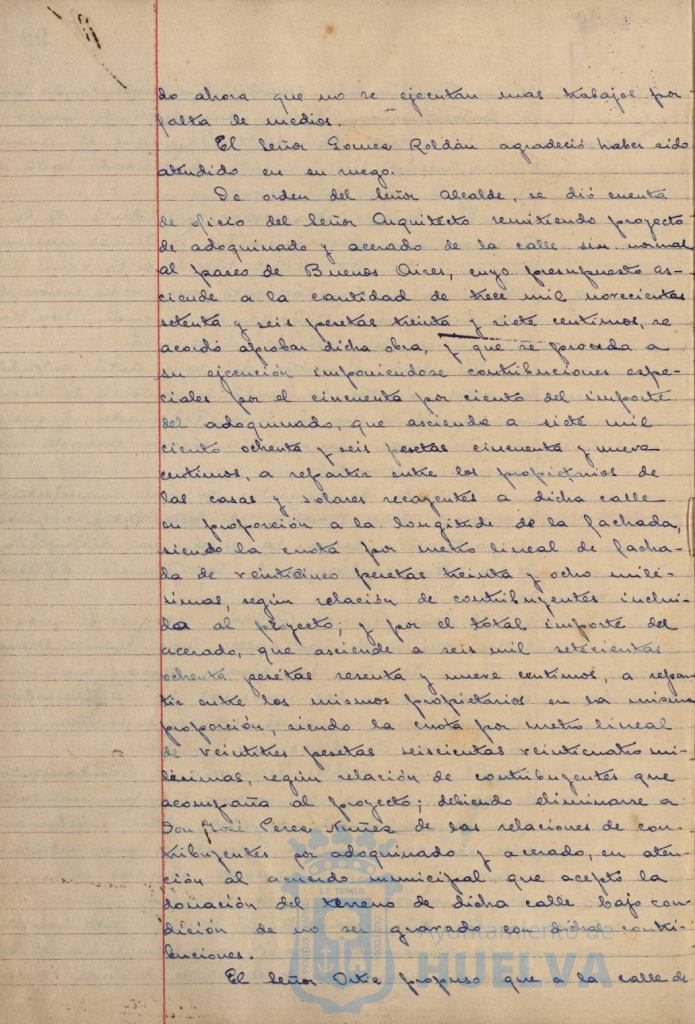 do ahora que no se ejecutan mas trabajos por
falta de medios.
El Señor Gomez Roldán agradeció haber sido
atendido en su ruego.
De orden del Señor Alcalde, se dió cuenta
de oficio del Señor Arquitecto remitiendo proyecto
de adoquinado y acerado de la calle sin normal
al paseo de Buenos Aires, cuyo presupuesto as-
ciende a la cantidad de trece mil novecientas
setenta y seis pesetas treinta y siete centimos, se
acordó aprobar dicha obra, y que se proceda a
su ejecución imponiendose contribuciones espe-
ciales por el cincuenta por ciento del importe
del adoquinado, que asciende a siete mil
ciento ochenta y seis pesetas cincuenta y nueve
centimos, a repartir entre los propietarios de
las casas y solares recayentes a dicha calle
en proporción a la longitud de la fachada,
siendo la cuota por metro lineal de facha-
da de veinticinco pesetas treinta y ocho mile-
simas, según relación de contribuyentes inclui-
da al proyecto; y por el total importe del
acerado, que asciende a seis mil setecientas
ochenta pesetas sesenta y nueve centimos, a repar-
tir entre los mismos propietarios en la misma
proporción, siendo la cuota por metro lineal
de veintitres pesetas seiscientas veinticuatro mi-
lesimas, según relación de contribuyentes que
acompaña al proyecto; debiendo eliminarse a
Don José Perez Nuñez de las relaciones de con-
tribuyentes por adoquinado y acerado, en aten-
ción al acuerdo municipal que aceptó la
donación del terreno de dicha calle bajo con-
dición de no ser gravado con dichas contri-
buciones.
El Señor Ortiz propuso que a la calle de
Ayuntamiento de
HUELVA